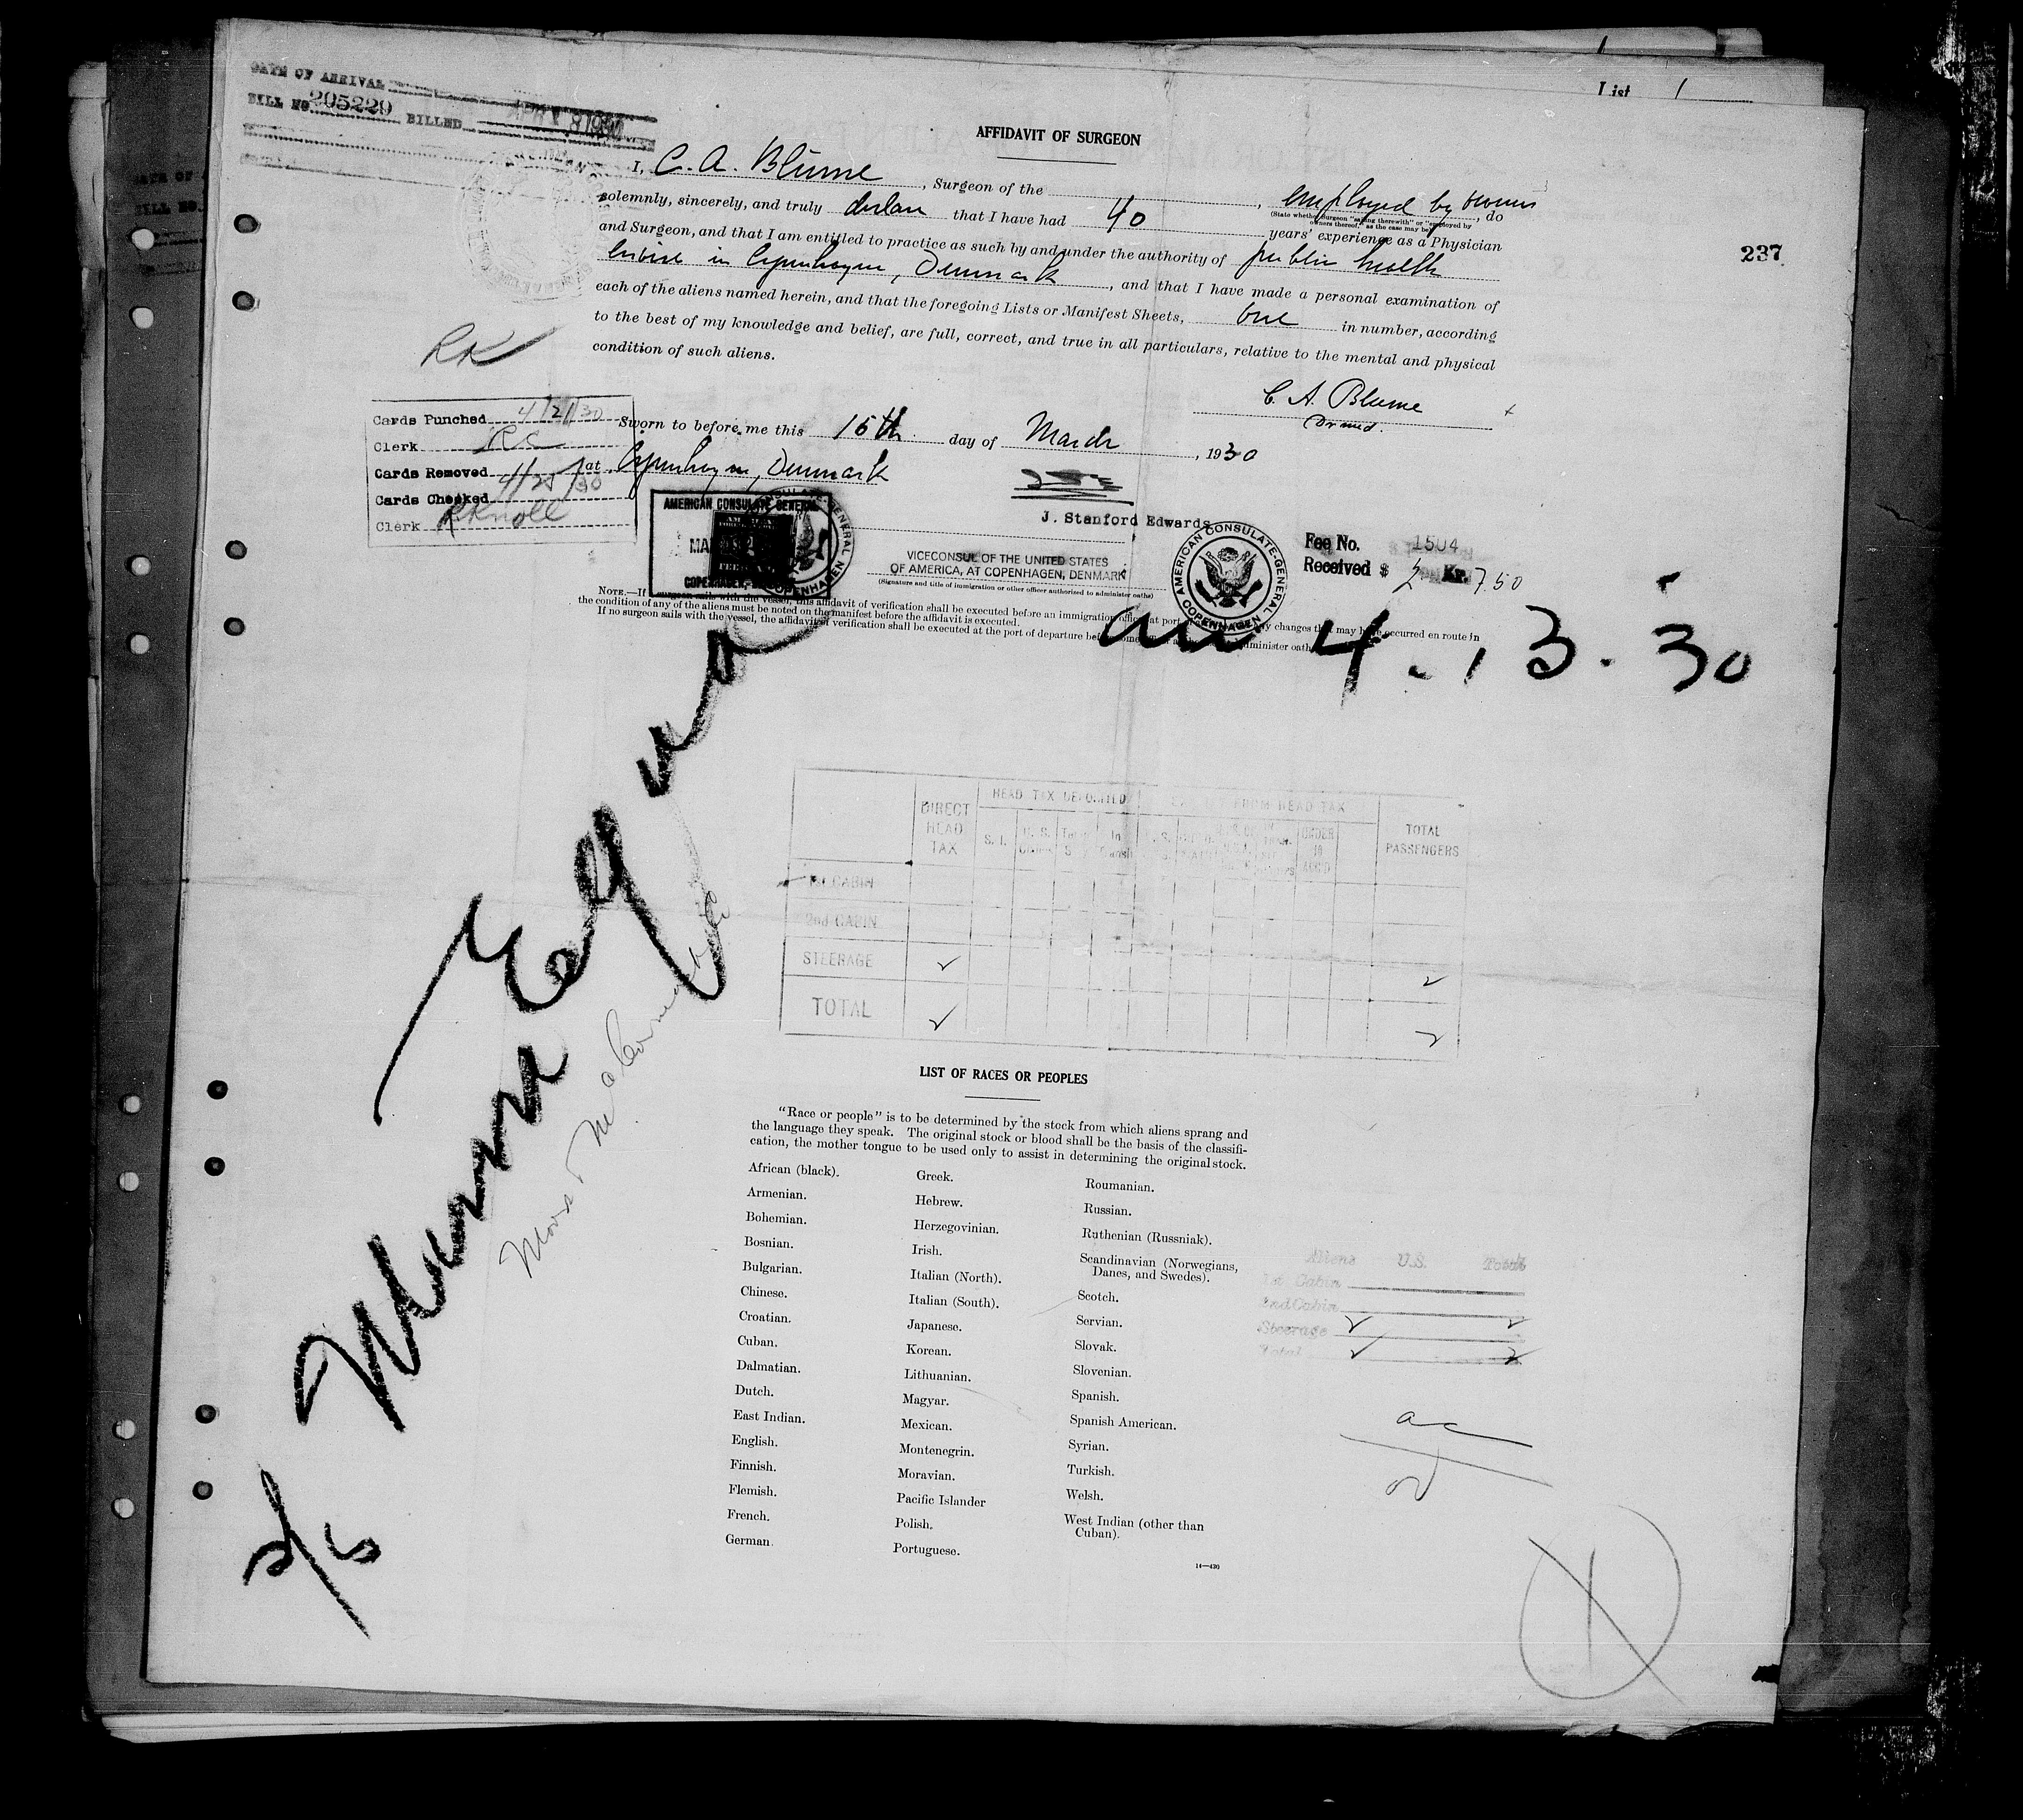 List 1
DATE OF ARRIVAL
BILL NO. 205229 BILLED
AFFIDAVIT OF SURGEON
I, C. A. Blume, Surgeon of the , employed by owners, do
(State whether surgeon "sailing therewith" or "employed by
owners thereof," as the case may be)
solemnly, sincerely, and truly declare that I have had 40 years' experience as a Physician
and Surgeon, and that I am entitled to practice as such by and under the authority of public health
in Copenhagen, Denmark, and that I have made a personal examination of
237
each of the aliens named herein, and that the foregoing Lists or Manifest Sheets, one in number, according
to the best of my knowledge and belief, are full, correct, and true in all particulars, relative to the mental and physical
condition of such aliens.
RK
C. A. Blume
Cards Punched 4/21/30
Clerk
Cards Removed
Cards Checked 4/25/30
Clerk RKnoll
Sworn to before me this 15th day of March, 1930
at Copenhagen, Denmark
AMERICAN CONSULATE GENERAL
J. Stanford Edwards
VICECONSUL OF THE UNITED STATES
OF AMERICA, AT COPENHAGEN, DENMARK
(Signature and title of immigration or other officer authorized to administer oaths)
AMERICAN CONSULATE-GENERAL COPENHAGEN
Fee No. 1504
Received $ 2 Kr. 7.50
NOTE.—If surgeon sails with the vessel, this affidavit of verification shall be executed before an immigration officer at port of changes that may have occurred en route in
the condition of any of the aliens must be noted on the manifest before the affidavit is executed.
If no surgeon sails with the vessel, the affidavit of verification shall be executed at the port of departure before administer oaths
4.13.30
HEAD TAX DEPOSITED FROM HEAD TAX
DIRECT HEAD TAX
S. I.
TOTAL PASSENGERS
1st CABIN
2nd CABIN
STEERAGE
TOTAL
LIST OF RACES OR PEOPLES
"Race or people" is to be determined by the stock from which aliens sprang and
the language they speak. The original stock or blood shall be the basis of the classifi-
cation, the mother tongue to be used only to assist in determining the original stock.
African (black).
Armenian.
Bohemian.
Bosnian.
Bulgarian.
Chinese.
Croatian.
Cuban.
Dalmatian.
Dutch.
East Indian.
English.
Finnish.
Flemish.
French.
German.
Greek.
Hebrew.
Herzegovinian.
Irish.
Italian (North).
Italian (South).
Japanese.
Korean.
Lithuanian.
Magyar.
Mexican.
Montenegrin.
Moravian.
Pacific Islander
Polish.
Portuguese.
Roumanian.
Russian.
Ruthenian (Russniak).
Scandinavian (Norwegians,
Danes, and Swedes).
Scotch.
Servian.
Slovak.
Slovenian.
Spanish.
Spanish American.
Syrian.
Turkish.
Welsh.
West Indian (other than
Cuban).
14—430
Aliens U.S. Total
1st Cabin
2nd Cabin
Steerage
Total